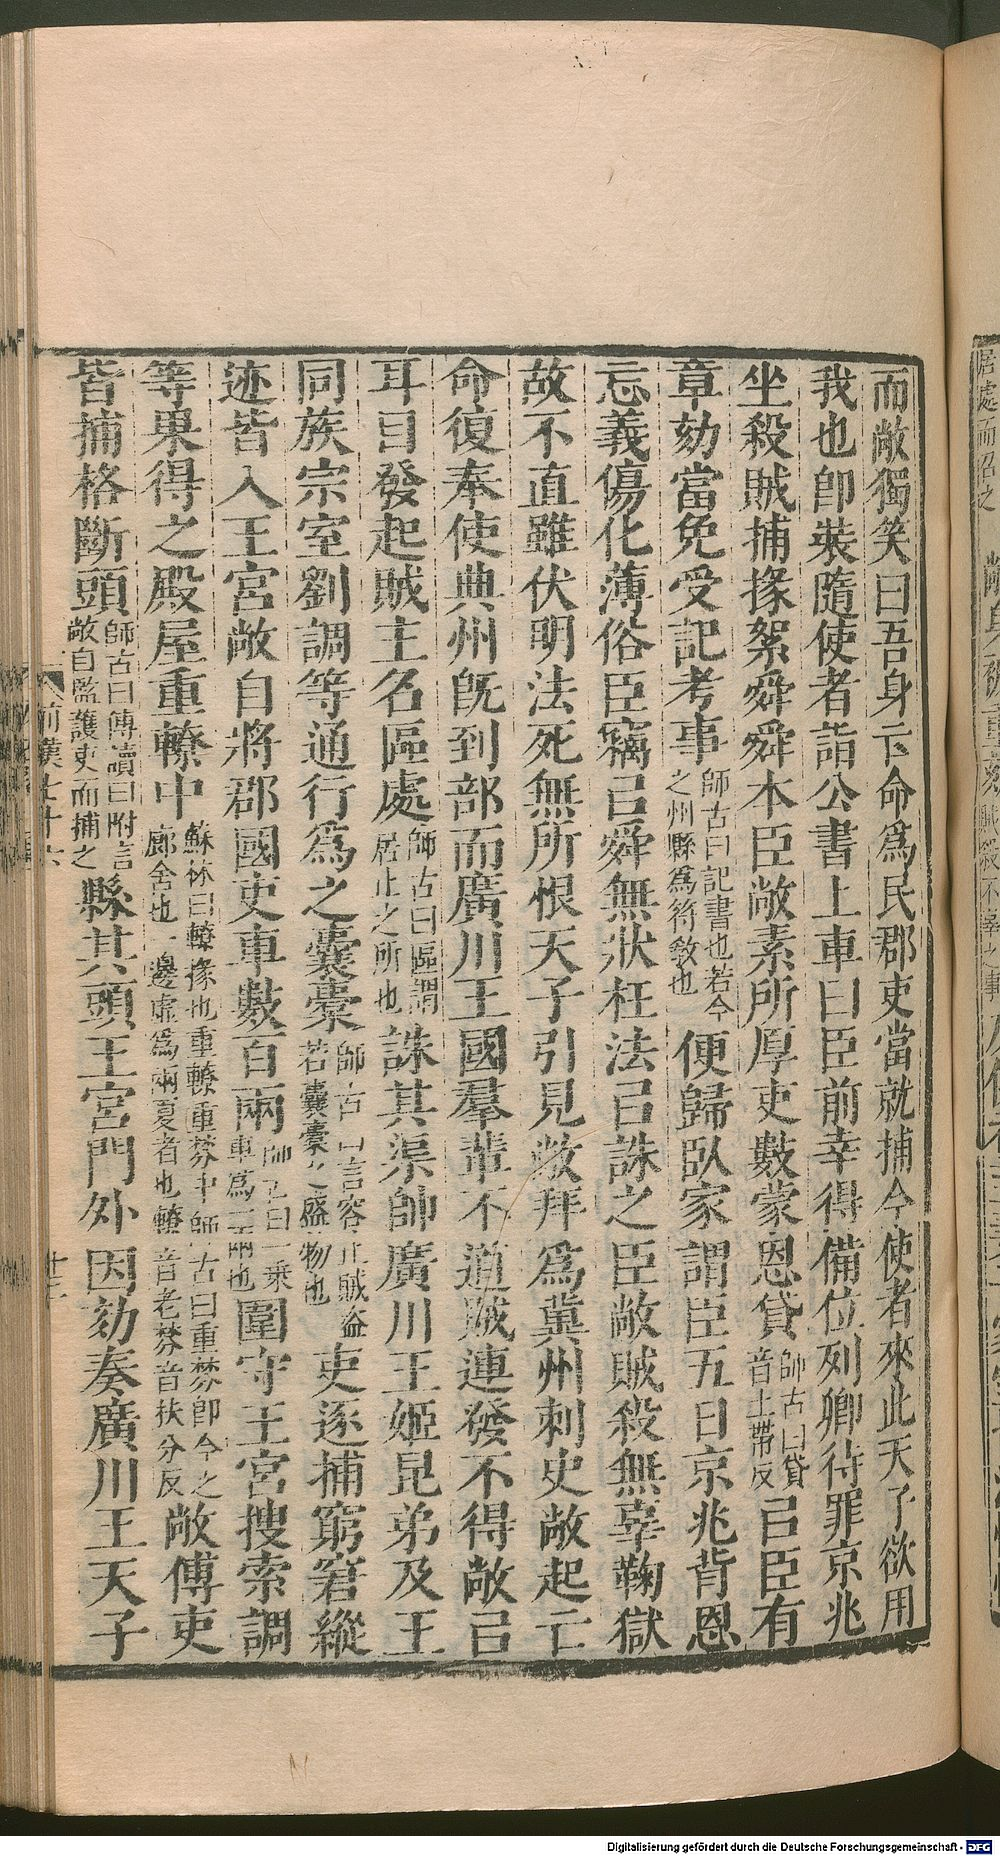 而敞獨笑曰吾身亡命爲民郡吏當就捕今使者來此天子欲用
我也卽裝隨使者詣公車上書曰臣前幸得備位列卿待罪京兆
坐殺賊捕掾絮舜舜本臣敞素所厚吏數蒙恩貸師古曰貸音土帶反㠯臣有
章劾當免受記考事師古曰記書也若今之州縣爲符敎也便歸臥家謂臣五日京兆背恩
忘義傷化薄俗臣竊㠯舜無狀枉法㠯誅之臣敞賊殺無辜鞠獄
故不直雖伏明法死無所恨天子引見敞拜爲冀州刺史敞起亡
命復奉使典州旣到部而廣川王國羣輩不道賊連發不得敞㠯
耳目發起賊主名區處師古曰區謂居止之所也誅其渠帥廣川王姬昆弟及王
同族宗室劉調等通行爲之囊橐師古曰言容止賊盜若囊橐之盛物也吏逐捕窮窘縱
迹皆入王宮敞自將郡國吏車數百兩師古曰一乘車爲一兩也圍守王宮搜索調
等果得之殿屋重轑中蘇林曰轑椽也重轑重棼中師古曰重棼卽今之廊舍也一邊虛爲兩夏者也轑音老棼音扶分反敞傅吏
皆捕格斷頭師古曰傅讀曰附言敞自監護吏而捕之縣其頭王宮門外因劾奏廣川王天子
前漢七十六
十三
Digitalisierung gefördert durch die Deutsche Forschungsgemeinschaft - DFG